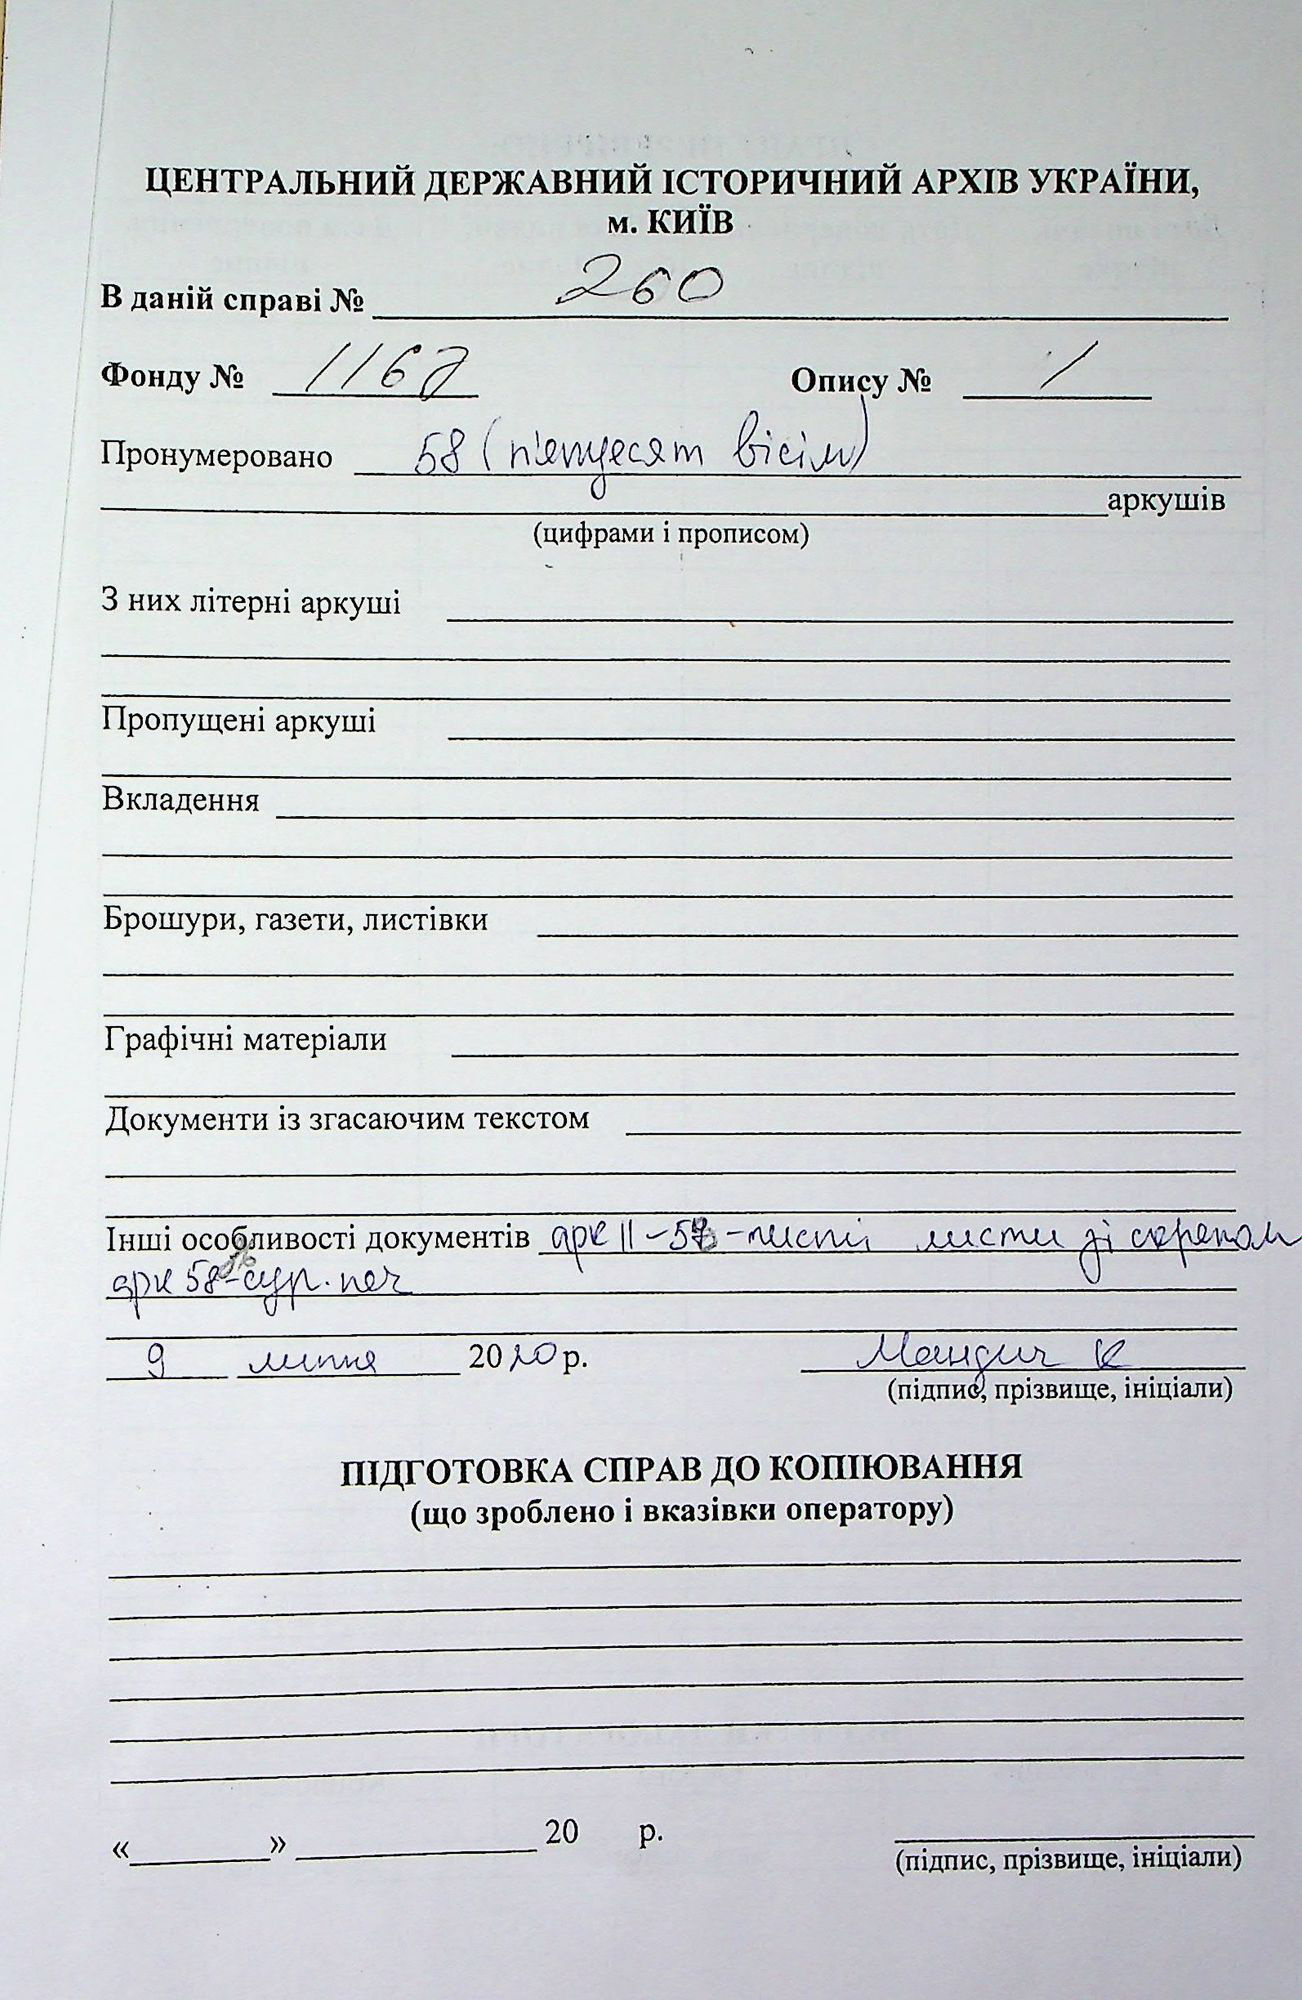 ЦЕНТРАЛЬНИЙ ДЕРЖАВНИЙ ІСТОРИЧНИЙ АРХІВ УКРАЇНИ,
м. КИЇВ
В даній справі № 260
Фонду № 1167 Опису № 1
Пронумеровано 58 (п'ятдесят вісім)
аркушів
(цифрами і прописом)
З них літерні аркуші
Пропущені аркуші
Вкладення
Брошури, газети, листівки
Графічні матеріали
Документи із згасаючим текстом
Інші особливості документів арк 11-57- листи зі скрепом
арк 58-сур. печ
9 липня 2020 р. Мандич К
(підпис, прізвище, ініціали)
ПІДГОТОВКА СПРАВ ДО КОПІЮВАННЯ
(що зроблено і вказівки оператору)
« » 20 р.
(підпис, прізвище, ініціали)